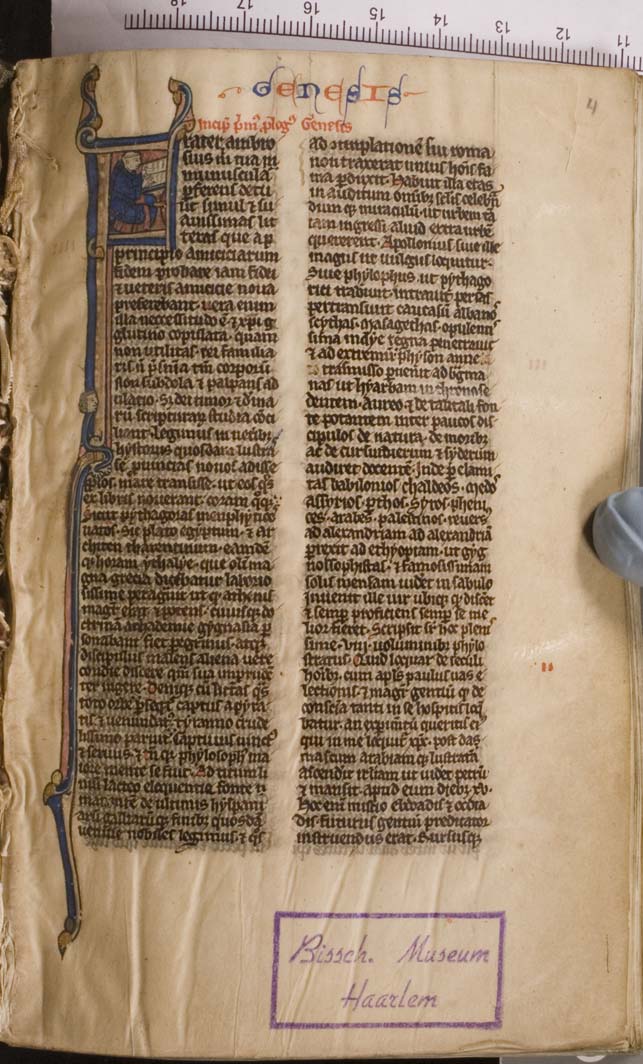 GENESIS
4
Incip̄ p̄m᷒ ꝓlog᷒ Genesis
Frater ambro
sius m̄ tua m̄
munuscula
ꝑferens detu
lit simul ⁊ su
auissimas lit
teras que a p̄
principio amiciciarum
fidem probate iam fidei
⁊ veteris amicicie noua
preferebant. uera enim
illa neccessitudo ē ⁊ xp̄i g
glutino copulata. quam
non utilitas rei familia
ris n̄ p̄sn̄ia tm̄ corporū
non subdola ⁊ palpans ad
ulacio. sꝫ dei timor ⁊ diuina
rū scripturaꝝ studia cōci
liant. legimus in ueteribꝫ
hystoriis quosdam lustra
se ꝓuincias nouos adisse
pp̄los. mare transisse. ut eos q̄s
ex libris nouerant. coram qꝫ
Sicut pythagoras memphyticos
uates. sic plato egyptum. ⁊ ar
chitem tharentinum. eamdē
qꝫ horam ythalye. que olim ma
gna grecia dicebatur laborio
sissime peragiuit ut qui athenis
magister erat ⁊ potens. cuiusqꝫ do
ctrina achademie gygnasia ꝑ
sonabant fieret peregrinus. atqꝫ
discipulus malens aliena uere
cunde discere qm̄ sua impruden
ter ingere. Deniqꝫ cū litteras q̄s
toto orbe ꝑseqt᷒ captus a pyra
tis ⁊ uenundatꝰ tyranno crude
lissimo paruit. Captiuus uinctꝰ
⁊ seruus. ⁊ tn̄ qꝫ phylosophꝰ ma
iore mente se fuit. Ad titum li
uiū lacteo eloquentie fonte
manantē de ultimis hyspani
arū galliarūqꝫ finibꝫ quosdā
uenisse nobiles legimus. ⁊ q̄s
ad contemplationē sui roma
non traxerat unius hoīs fa
ma ꝑduxit. Habuit illa etas
in auditum omībꝫ sclis celebrā
dum qꝫ miraculū. ut urbem tā
tam ingressi aliud extra urbē
quererent. Apollonius siue ille
magus ut uulgus loquitur.
Siue phylosophus. ut pythago
rici tradunt. intrauit persas
pertransiuit caucasū albano
scythas. masagethas. opulenti
sima indye regna penetrauit
⁊ ad extremū physon amne
transmisso puenit ad bragma
nas ut hyarbam in throno se
dentem. Aureo ⁊ de tantali fon
te potantem inter paucos dis
cipulos de natura. de moribꝫ
ac de cursu dierum ⁊ syderum
audiret docentē. Inde ꝑ elami
tas babilonios chaldeos. medos
assyrios. pthos. syros. pheni
ces. arabes. palestinos. reuersꝰ
ad alexandriam ad alexandriā
ꝑrexit ad ethyopiam. ut gyg
nosophistas. ⁊ famosissimam
solis mensam uidet in sabulo
Inuenit ille uir ubiqꝫ qꝫ discet
⁊ semꝑ proficiens semꝑ se me
lior fieret. Scripsit sr̄ hoc pleni
sime. viij. uoluminibꝫ phylo
stratus. Quid loquar de seculi
hoībꝫ. cum apl̄s paulus uas e
lectionis. ⁊ magr̄ gentiū qꝫ de
conscia tanti in se hospitis loq
batur. an exꝑimētū queritis eiꝰ
qui in me loquit᷒ xp̄c. post das
mascum arabiam qꝫ lustratā
ascendit ierl̄iam ut uider petrū
⁊ mansit. apud eum diebꝫ xv.
Hoc enī misterio ebdoadis ⁊ ocdoa
dis. futurus gentiū predicator
instruendus erat. Rursusqꝫ
Bissch. Museum
Haarlem
18
16
15
14
13
12
11